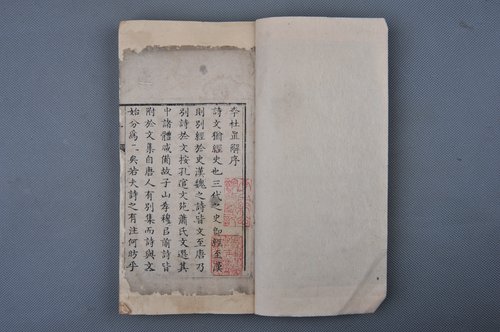 李杜詩解序
詩文猶經史也三代之史即經至漢
則別經於史漢魏之詩皆文至唐乃
別詩於文按孔逭文苑蕭氏文選其
中諸體咸備故子山孝穆巨諭詩皆
附於文集自唐人有別集而詩與文
始分為二矣若夫詩之有注何昉乎